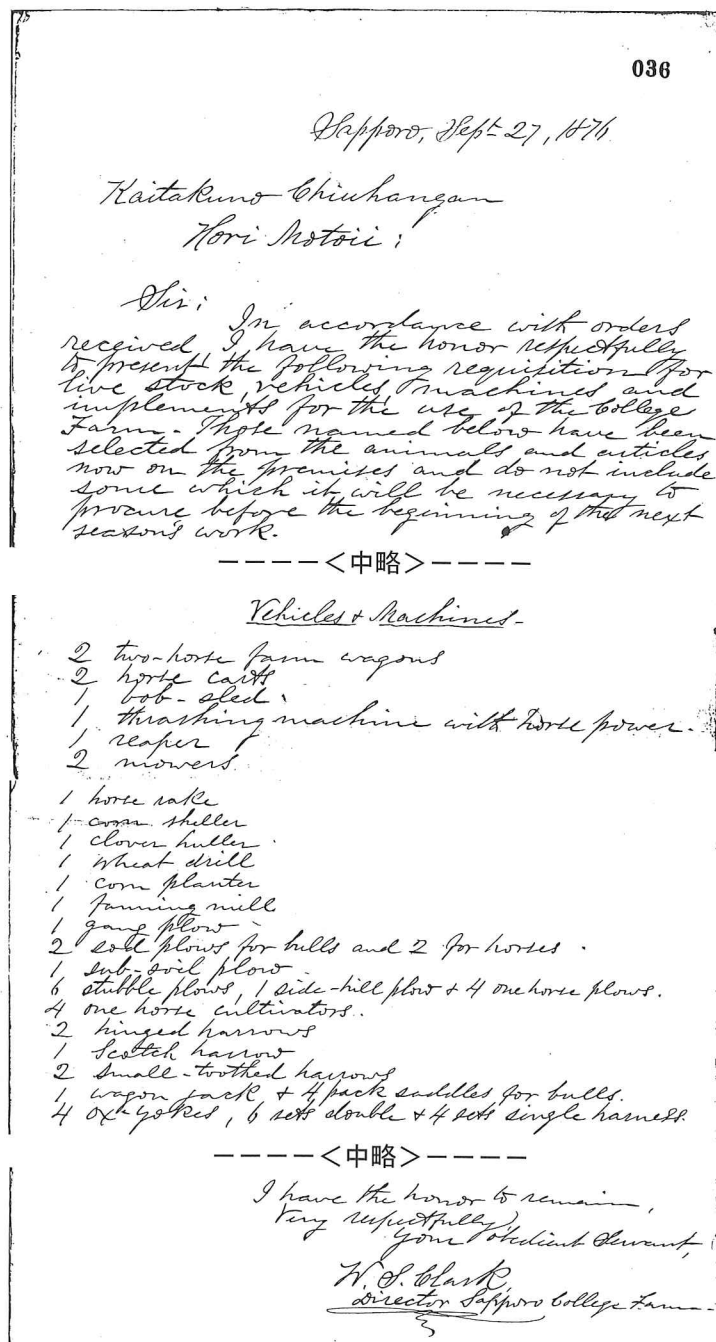 036
Sapporo, Sept 27, 1876
Kaitakuno Chiuhangan
Hori Motoii:
Sir:
In accordance with orders
received, I have the honor respectfully
to present the following requisition for
live stock, vehicles, machines and
implements for the use of the College
Farm. Those named below have been
selected from the animals and articles
now on the premises and do not include
some which it will be necessary to
procure before the beginning of the next
season's work.
－－－－＜中略＞－－－－
Vehicles & Machines-
2 two-horse farm wagons
2 horse carts
1 bob-sled.
1 thrashing machine with horse power.
1 reaper
2 mowers.
1 horse rake
1 corn sheller
1 clover huller
1 wheat drill
1 corn planter
1 fanning mill
1 gang plow
2 sod plows for bulls and 2 for horses.
1 sub-soil plow
6 stubble plows, 1 side-hill plow & 4 one horse plows.
4 one horse cultivators.
2 hinged harrows
1 Scotch harrow
2 small-toothed harrows
1 wagon jack & 4 pack saddles for bulls.
4 ox-yokes, 6 sets double & 4 sets single harness.
－－－－＜中略＞－－－－
I have the honor to remain,
Very respectfully,
Your obedient Servant,
W. S. Clark,
Director Sapporo College Farm-